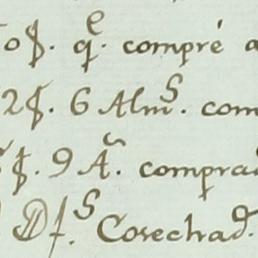 0$. q.e compré a
2$. 6 Alm.s com
$. 9 A.n comprad
Df.s Cosechad.